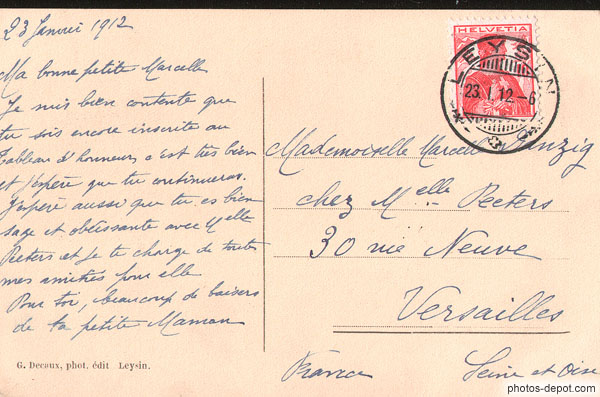 23 Janvier 1912
Ma bonne petite Marcelle
Je suis bien contente que
tu sois encore inscrite au
tableau d'honneur, c'est très bien
et j'espère que tu continueras.
J'espère aussi que tu es bien
sage et obéissante avec Melle
Peeters et je te charge de toutes
mes amitiés pour elle
Pour toi, beaucoup de baisers
de ta petite Maman
G. Decaux, phot. édit Leysin.
HELVETIA
LEYSIN
23.I.12.-6
Mademoiselle Marcelle
chez Melle Peeters
30 rue Neuve
Versailles
France Seine et Oise
photos-depot.com